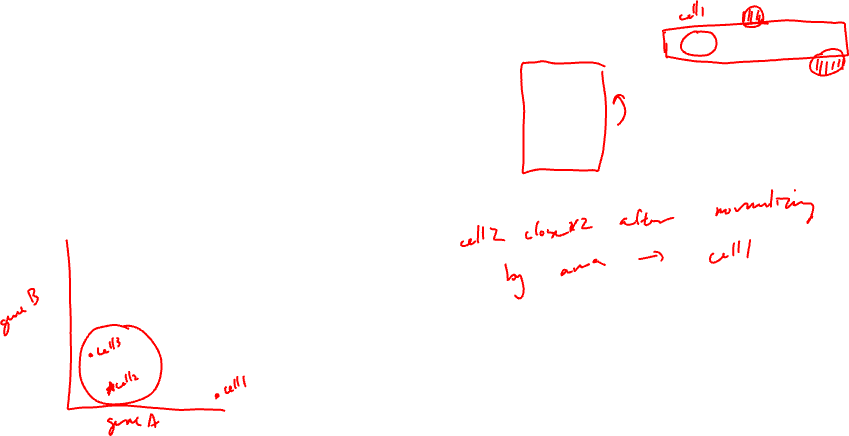 cell1
cell2 closer after normalizing
by area → cell1
gene B
cell3
cell2
cell1
gene A